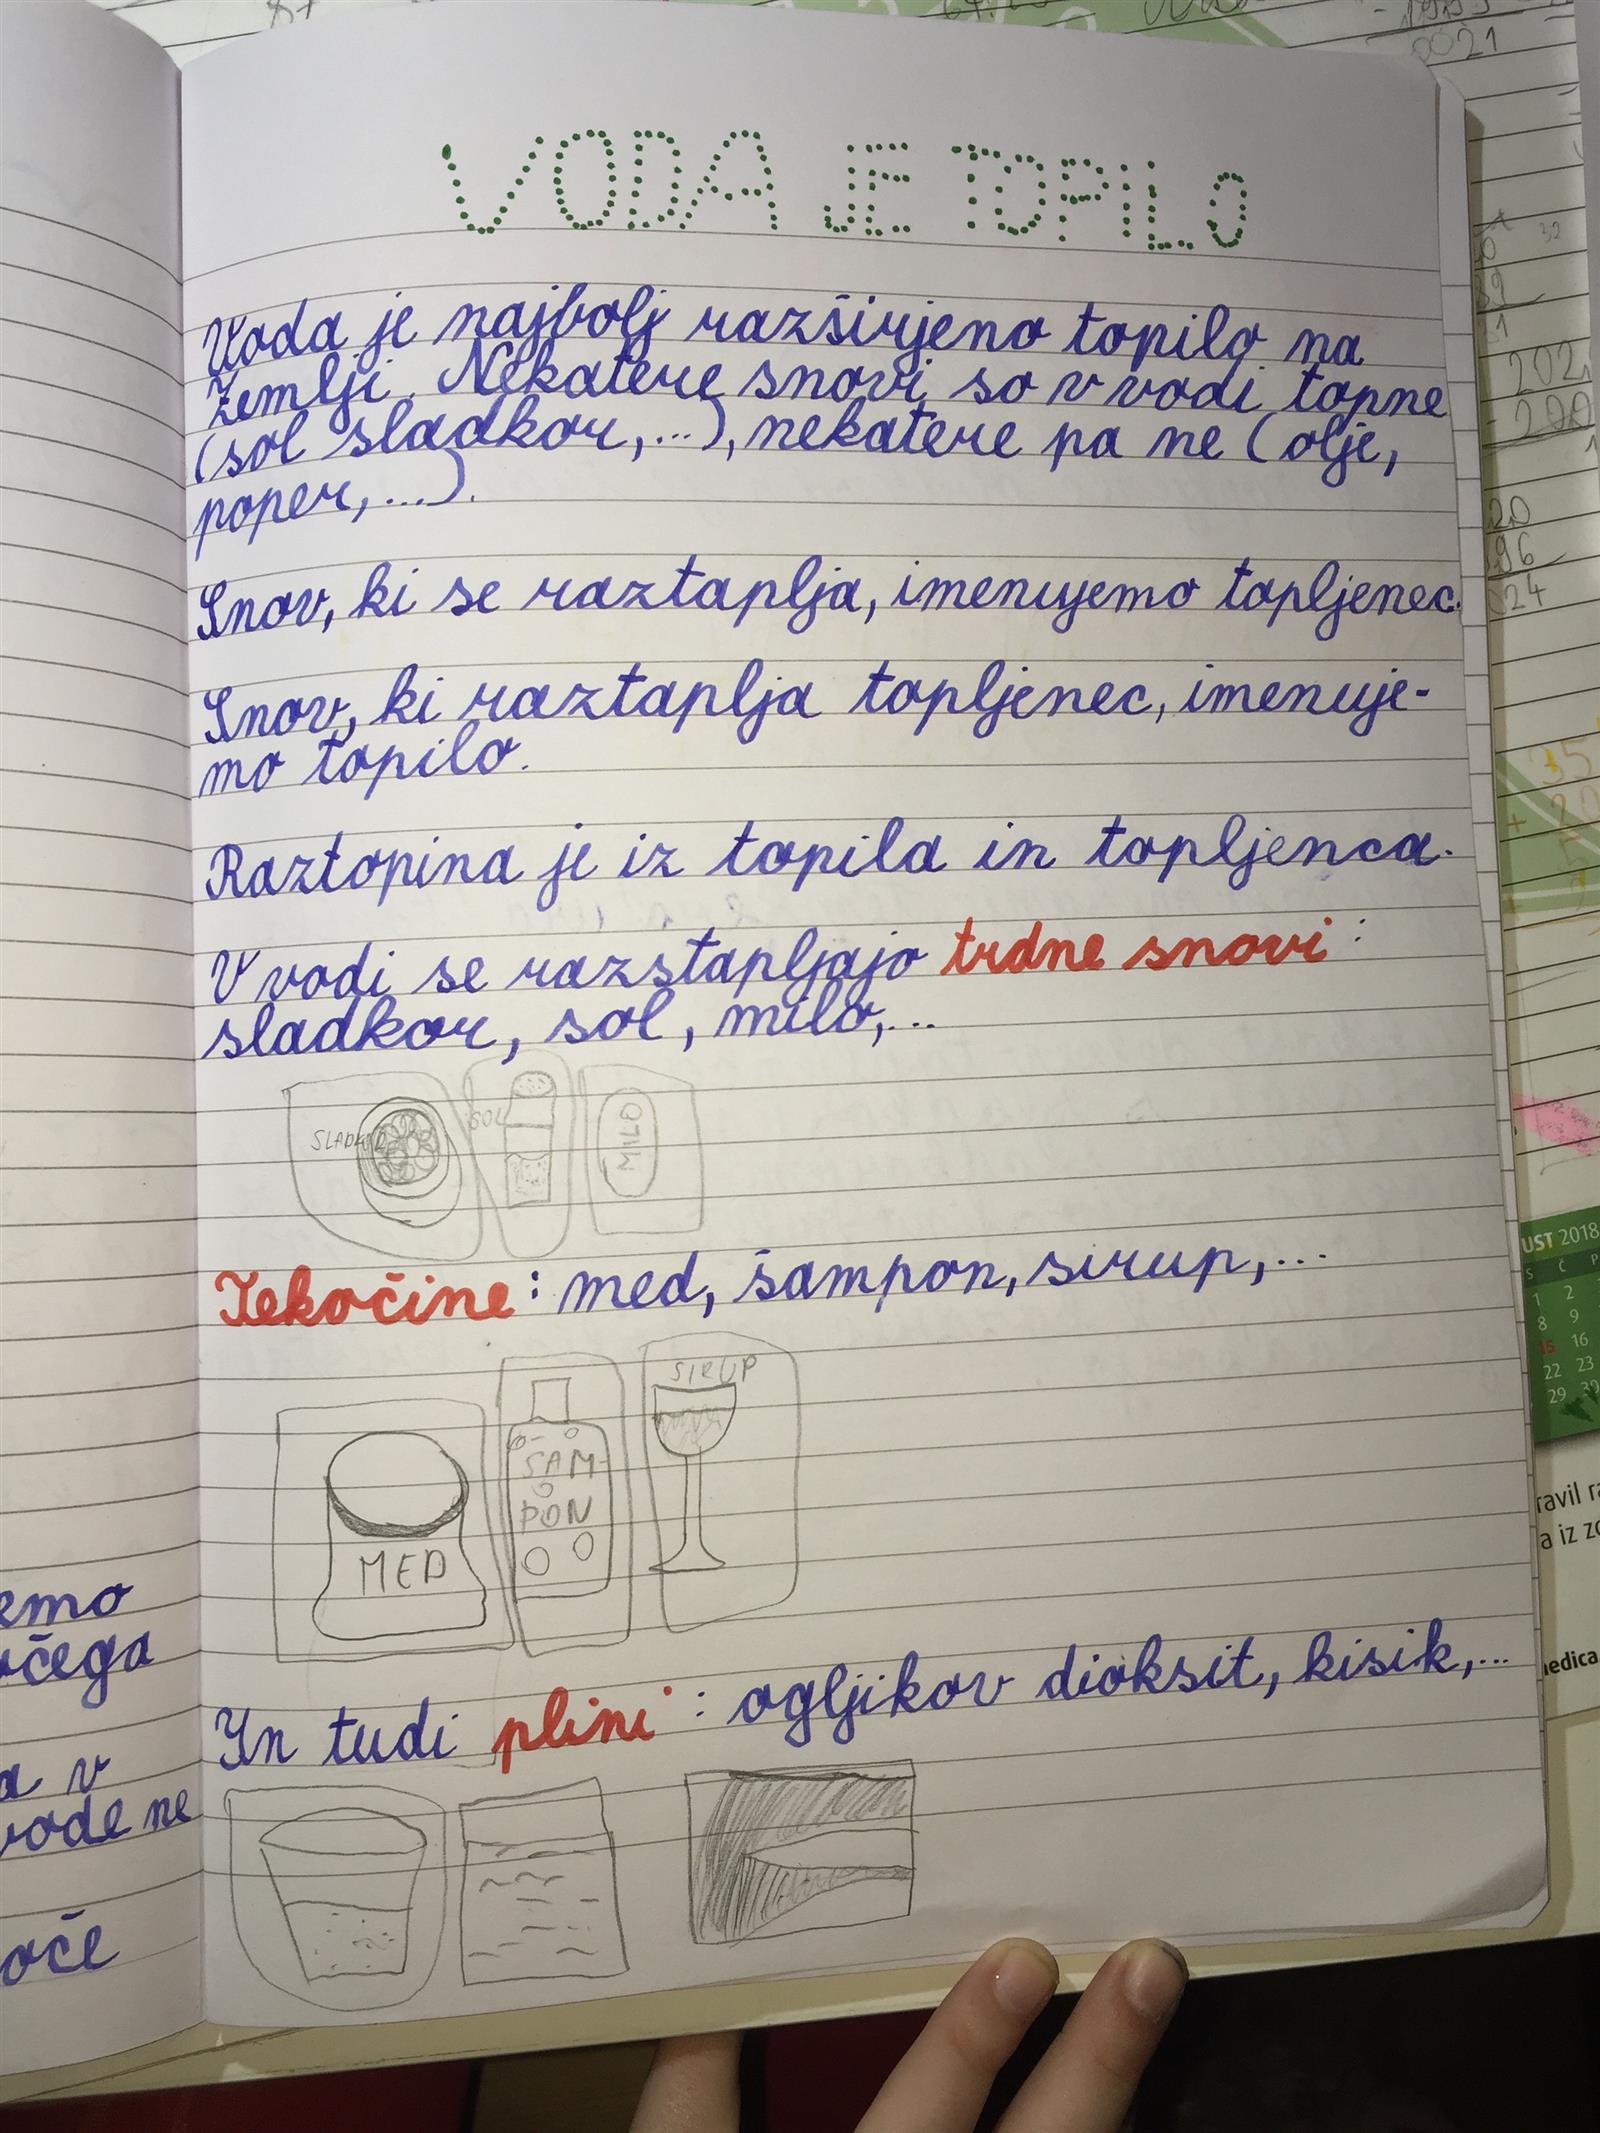 VODA JE TOPILO
Voda je najbolj razširjeno topilo na
Zemlji. Nekatere snovi so v vodi topne
(sol sladkor,...), nekatere pa ne (olje,
poper,...).
Snov, ki se raztaplja, imenujemo topljenec.
Snov, ki raztaplja topljenec, imenuje-
mo topilo.
Raztopina je iz topila in topljenca.
V vodi se razstapljajo trdne snovi:
sladkor, sol, milo,...
SLADKOR
SOL
MILO
Tekočine: med, šampon, sirup,...
SIRUP
ŠAM-
PON
MED
In tudi plini: ogljikov dioksit, kisik,...
emo
očega
a v
vode ne
oče
0021
32
202
200
20
96
024
35
+ 20
UST 2018
S Č P
1 2
8 9
15 16
22 23
29 30
ravil ra
a iz zo
medica